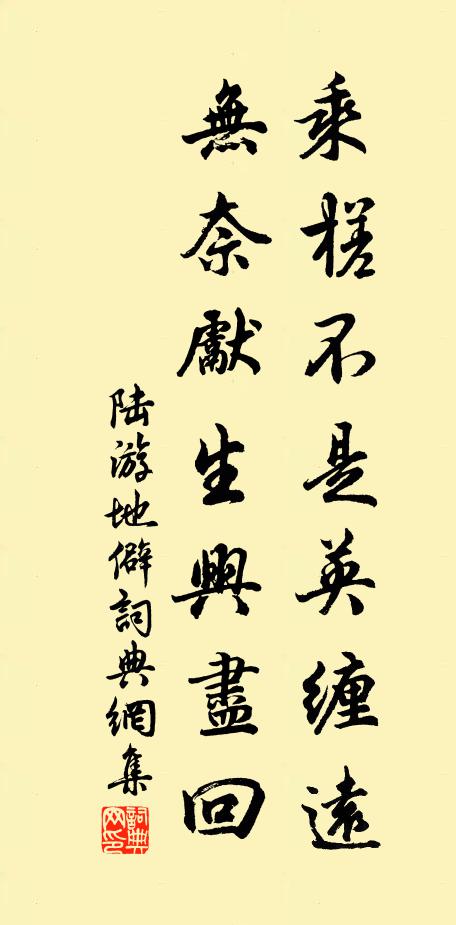 乘槎不是英缠遠
無奈獻生興盡回
陆游地僻詞典網集
詞典網印